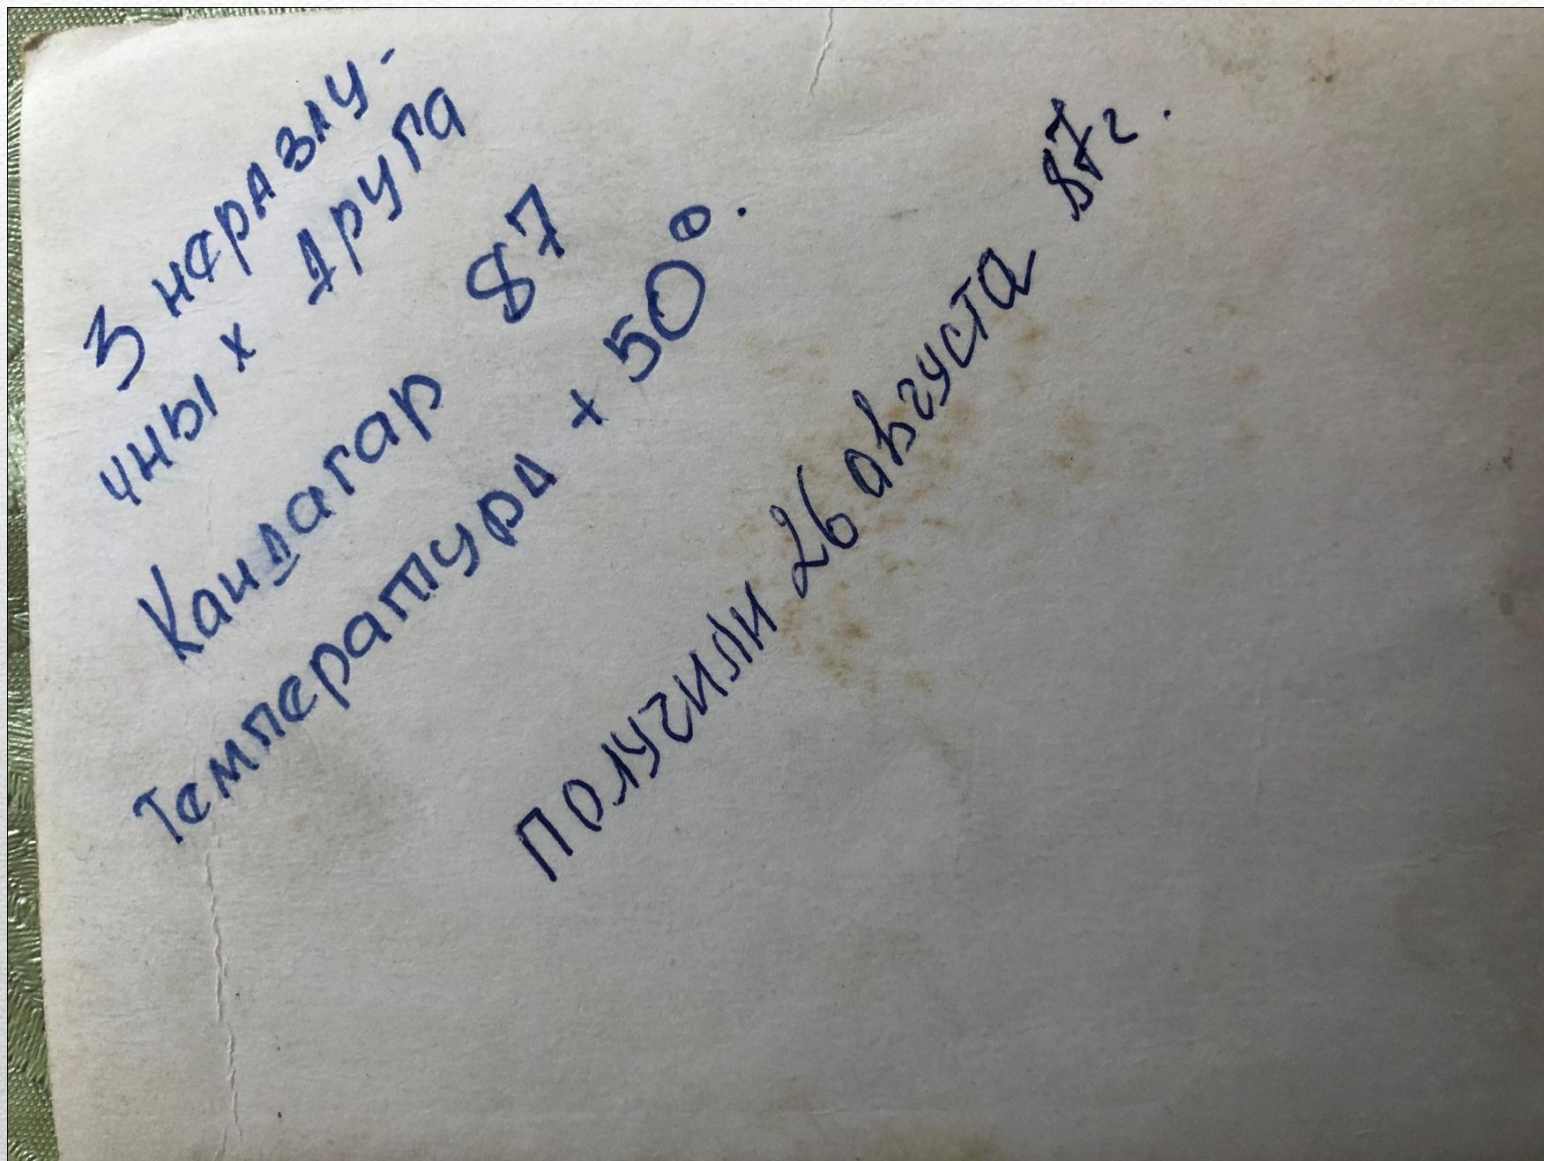 3 неразлу-
чных друга
Кандагар 87
Температура +50°.
Получили 26 августа 87г.